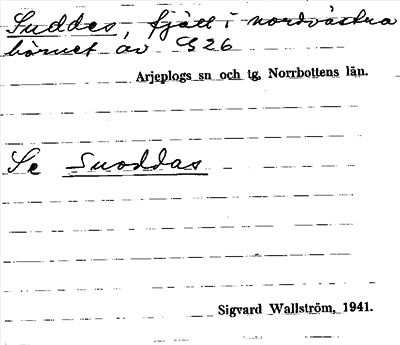 Suddes, fjäll i nordvästra
hörnet av G26
Arjeplogs sn och tg, Norrbottens län.
Se Suoddas
Sigvard Wallström, 1941.